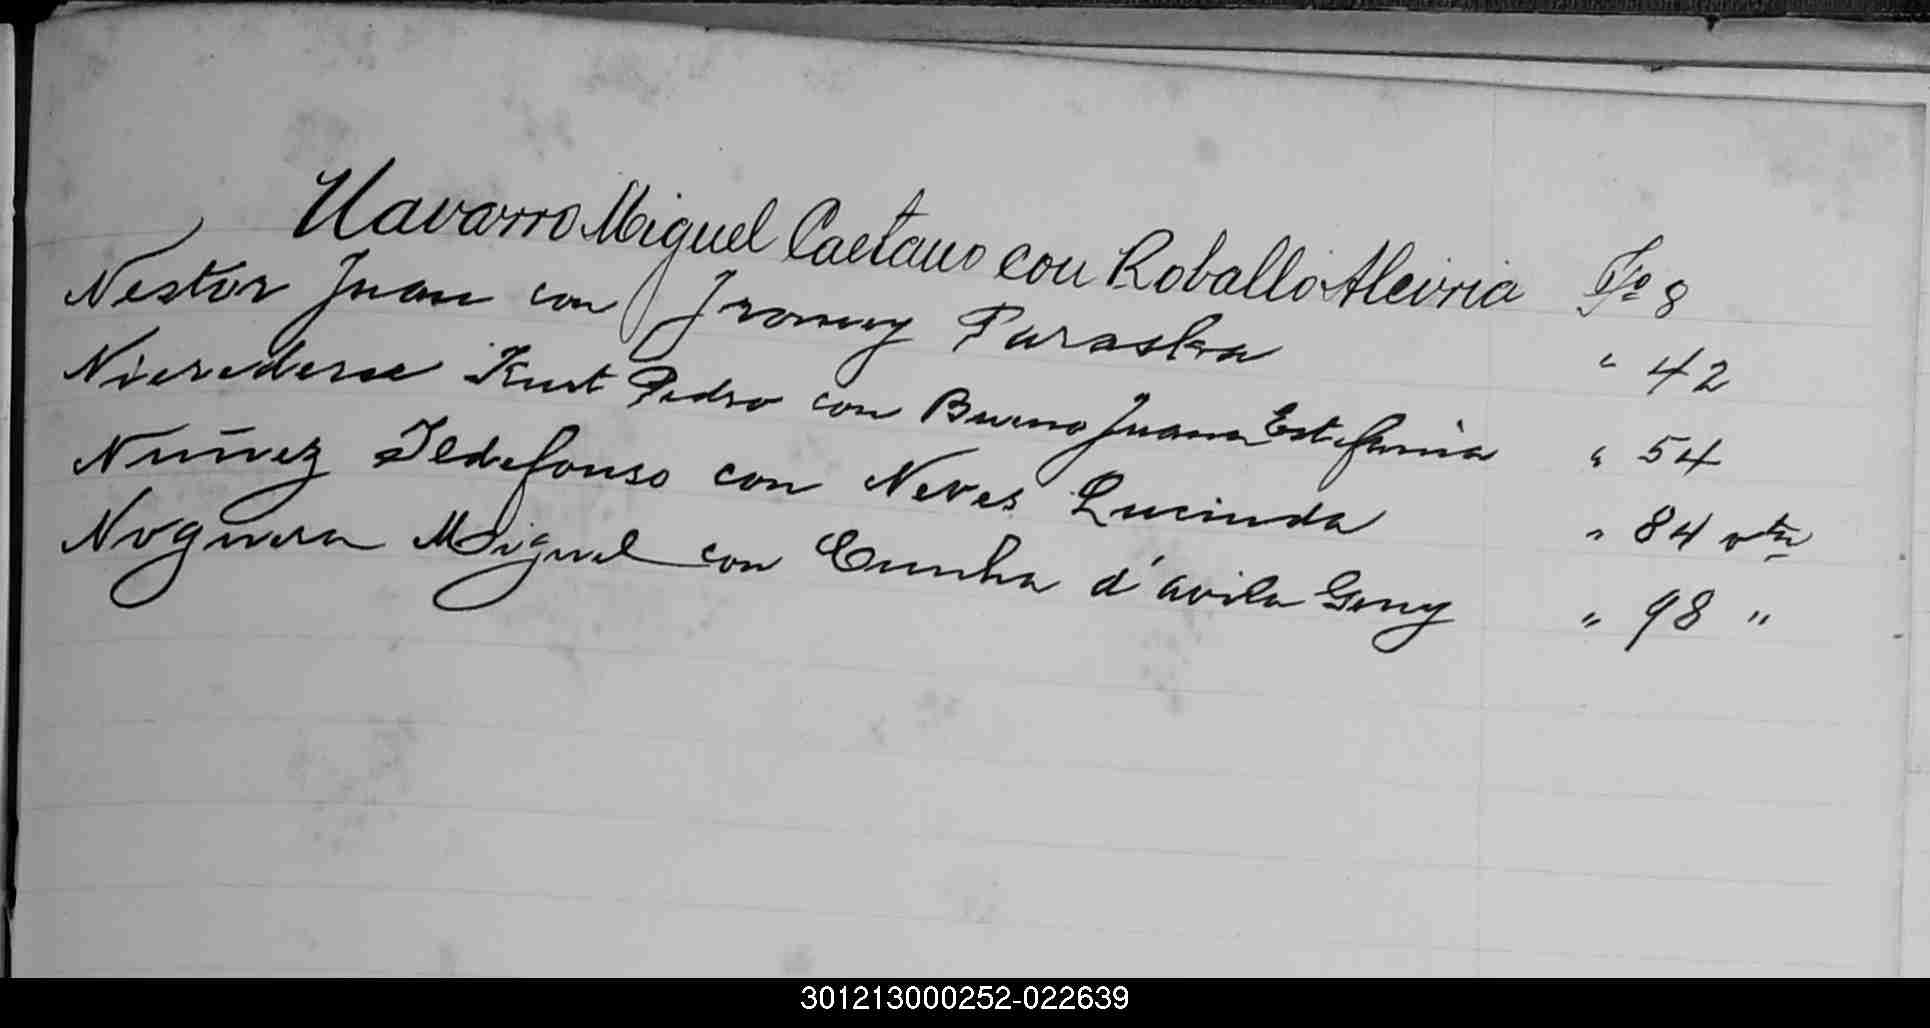 Navarro Miguel Caetano con Roballo Aleiria Fº 8
Nestor Juan con Paraska " 42
Kurt Pedro con Bueno Juana Estefania " 54
Nuñez Ildefonso con Neves Lucinda " 84 vta
Noguera Miguel con Cunha d'avila Geny " 98 "
301213000252-022639